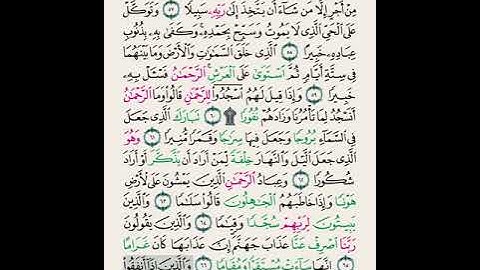 مِنْ أَجْرٍ إِلَّا مَن شَآءَ أَن يَتَّخِذَ إِلَىٰ رَبِّهِۦ سَبِيلًا ٥٧ وَتَوَكَّلْ
عَلَى ٱلْحَىِّ ٱلَّذِى لَا يَمُوتُ وَسَبِّحْ بِحَمْدِهِۦ ۚ وَكَفَىٰ بِهِۦ بِذُنُوبِ
عِبَادِهِۦ خَبِيرًا ٥٨ ٱلَّذِى خَلَقَ ٱلسَّمَـٰوَٰتِ وَٱلْأَرْضَ وَمَا بَيْنَهُمَا
فِى سِتَّةِ أَيَّامٍ ثُمَّ ٱسْتَوَىٰ عَلَى ٱلْعَرْشِ ۚ ٱلرَّحْمَـٰنُ فَسْـَٔلْ بِهِۦ
خَبِيرًا ٥٩ وَإِذَا قِيلَ لَهُمُ ٱسْجُدُوا۟ لِلرَّحْمَـٰنِ قَالُوا۟ وَمَا ٱلرَّحْمَـٰنُ
أَنَسْجُدُ لِمَا تَأْمُرُنَا وَزَادَهُمْ نُفُورًا ۩ ٦٠ تَبَارَكَ ٱلَّذِى جَعَلَ
فِى ٱلسَّمَآءِ بُرُوجًا وَجَعَلَ فِيهَا سِرَٰجًا وَقَمَرًا مُّنِيرًا ٦١ وَهُوَ
ٱلَّذِى جَعَلَ ٱلَّيْلَ وَٱلنَّهَارَ خِلْفَةً لِّمَنْ أَرَادَ أَن يَذَّكَّرَ أَوْ أَرَادَ
شُكُورًا ٦٢ وَعِبَادُ ٱلرَّحْمَـٰنِ ٱلَّذِينَ يَمْشُونَ عَلَى ٱلْأَرْضِ
هَوْنًا وَإِذَا خَاطَبَهُمُ ٱلْجَـٰهِلُونَ قَالُوا۟ سَلَـٰمًا ٦٣ وَٱلَّذِينَ
يَبِيتُونَ لِرَبِّهِمْ سُجَّدًا وَقِيَـٰمًا ٦٤ وَٱلَّذِينَ يَقُولُونَ
رَبَّنَا ٱصْرِفْ عَنَّا عَذَابَ جَهَنَّمَ ۖ إِنَّ عَذَابَهَا كَانَ غَرَامًا
٦٥ إِنَّهَا سَآءَتْ مُسْتَقَرًّا وَمُقَامًا ٦٦ وَٱلَّذِينَ إِذَآ أَنفَقُوا۟